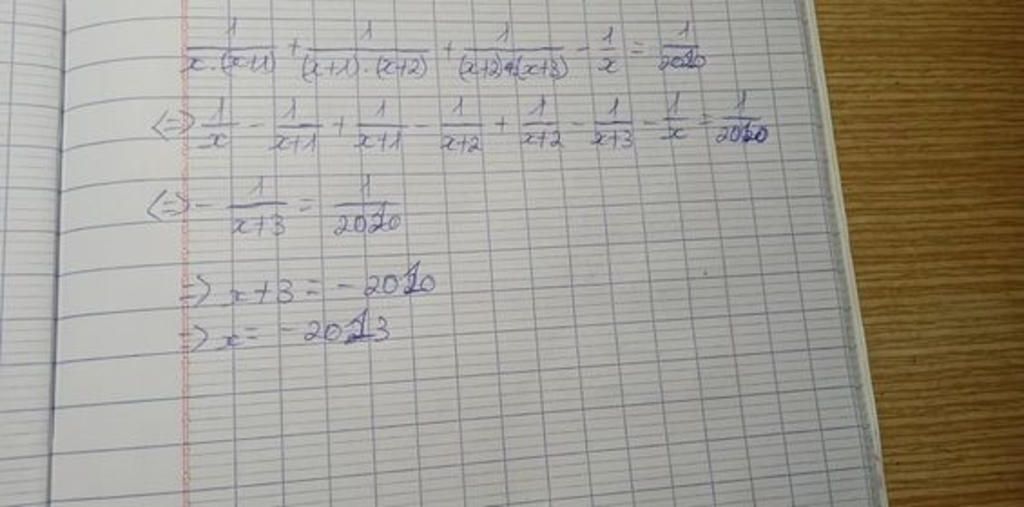 1/(x.(x+1)) + 1/((x+1).(x+2)) + 1/((x+2).(x+3)) - 1/x = 1/2010
<=> 1/x - 1/(x+1) + 1/(x+1) - 1/(x+2) + 1/(x+2) - 1/(x+3) - 1/x = 1/2010
<=> - 1/(x+3) = 1/2010
=> x+3 = -2010
=> x = -2013